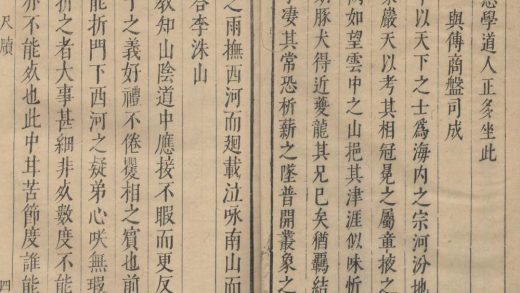 學道人正多坐此
與傅商盤司成
以天下之士爲海内之宗河汾地
嚴天以考其相冠冕之屬童掖之
如望雲中之山挹其津涯似味忻
豚犬得近夔龍其兄巳矣猶羈結
凄其常恐析薪之墜普開叢象之
之雨撫西河而廻載泣咏南山而
答李洙山
教知山陰道中應接不暇而更反
之義好禮不倦矍相之賓也前
能折門下西河之疑弟心咲無瑕
折之者大事甚細非數度不能
亦不能也此中耳苦節度誰能
尺牘 四